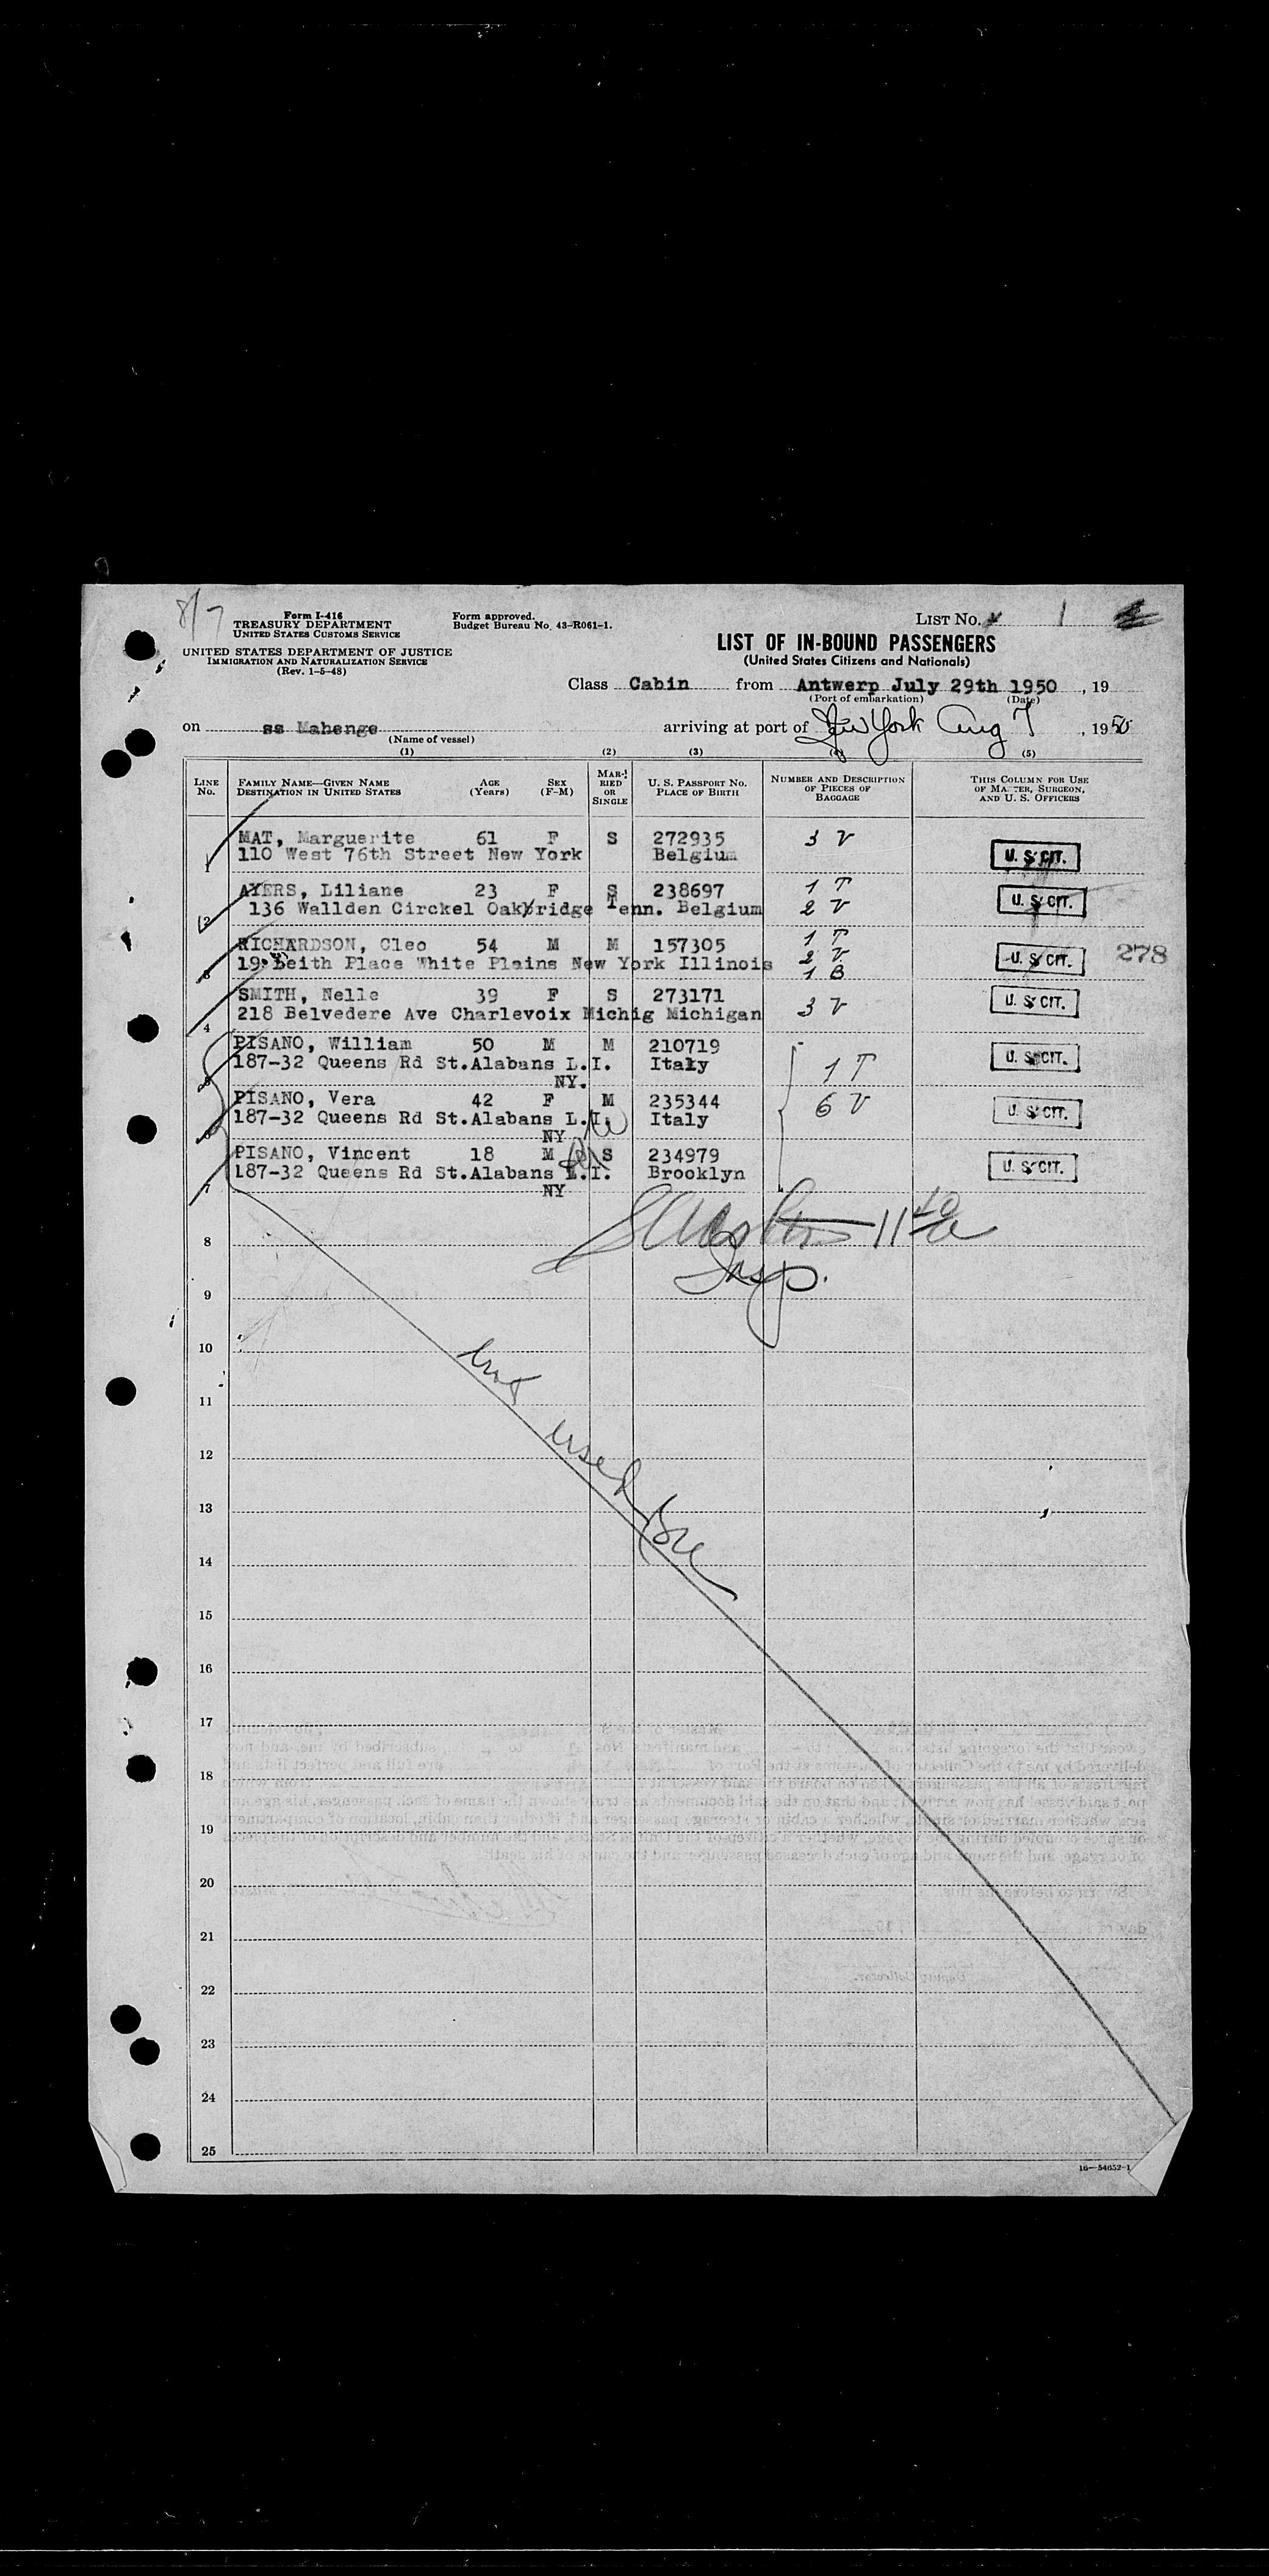 8/7
Form I-416
TREASURY DEPARTMENT
UNITED STATES CUSTOMS SERVICE
Form approved.
Budget Bureau No. 43-R061-1.
LIST NO. 1
UNITED STATES DEPARTMENT OF JUSTICE
IMMIGRATION AND NATURALIZATION SERVICE
(Rev. 1-5-48)
LIST OF IN-BOUND PASSENGERS
(United States Citizens and Nationals)
Class Cabin from Antwerp July 29th 1950 , 19
(Port of embarkation) (Date)
on ss Mahenge arriving at port of New York Aug 7 , 1950
(Name of vessel)
(1) (2) (3) (4) (5)
LINE NO. FAMILY NAME—GIVEN NAME DESTINATION IN UNITED STATES AGE (Years) SEX (F-M) MARRIED OR SINGLE U. S. PASSPORT NO. PLACE OF BIRTH NUMBER AND DESCRIPTION OF PIECES OF BAGGAGE THIS COLUMN FOR USE OF MASTER, SURGEON, AND U. S. OFFICERS
1 MAT, Marguerite 61 F S 272935 3 V U. S. CIT.
110 West 76th Street New York Belgium
2 AYERS, Liliane 23 F S 238697 1 T U. S. CIT.
136 Wallden Circkel Oakbridge Tenn. Belgium 2 V
3 RICHARDSON, Cleo 54 M M 157305 1 T U. S. CIT. 278
19 Beith Place White Plains New York Illinois 2 V
1 B
4 SMITH, Nelle 39 F S 273171 3 V U. S. CIT.
218 Belvedere Ave Charlevoix Michig Michigan
5 PISANO, William 50 M M 210719 U. S. CIT.
187-32 Queens Rd St.Alabans L.I. Italy 1 T
NY.
6 PISANO, Vera 42 F M 235344 6 V U. S. CIT.
187-32 Queens Rd St.Alabans L.I. Italy
NY
7 PISANO, Vincent 18 M S 234979 U. S. CIT.
187-32 Queens Rd St.Alabans L.I. Brooklyn
NY
8
Insp.
9
10
not used
11
12
13
14
15
16
17
18
19
20
21
22
23
24
25
16—54652-1